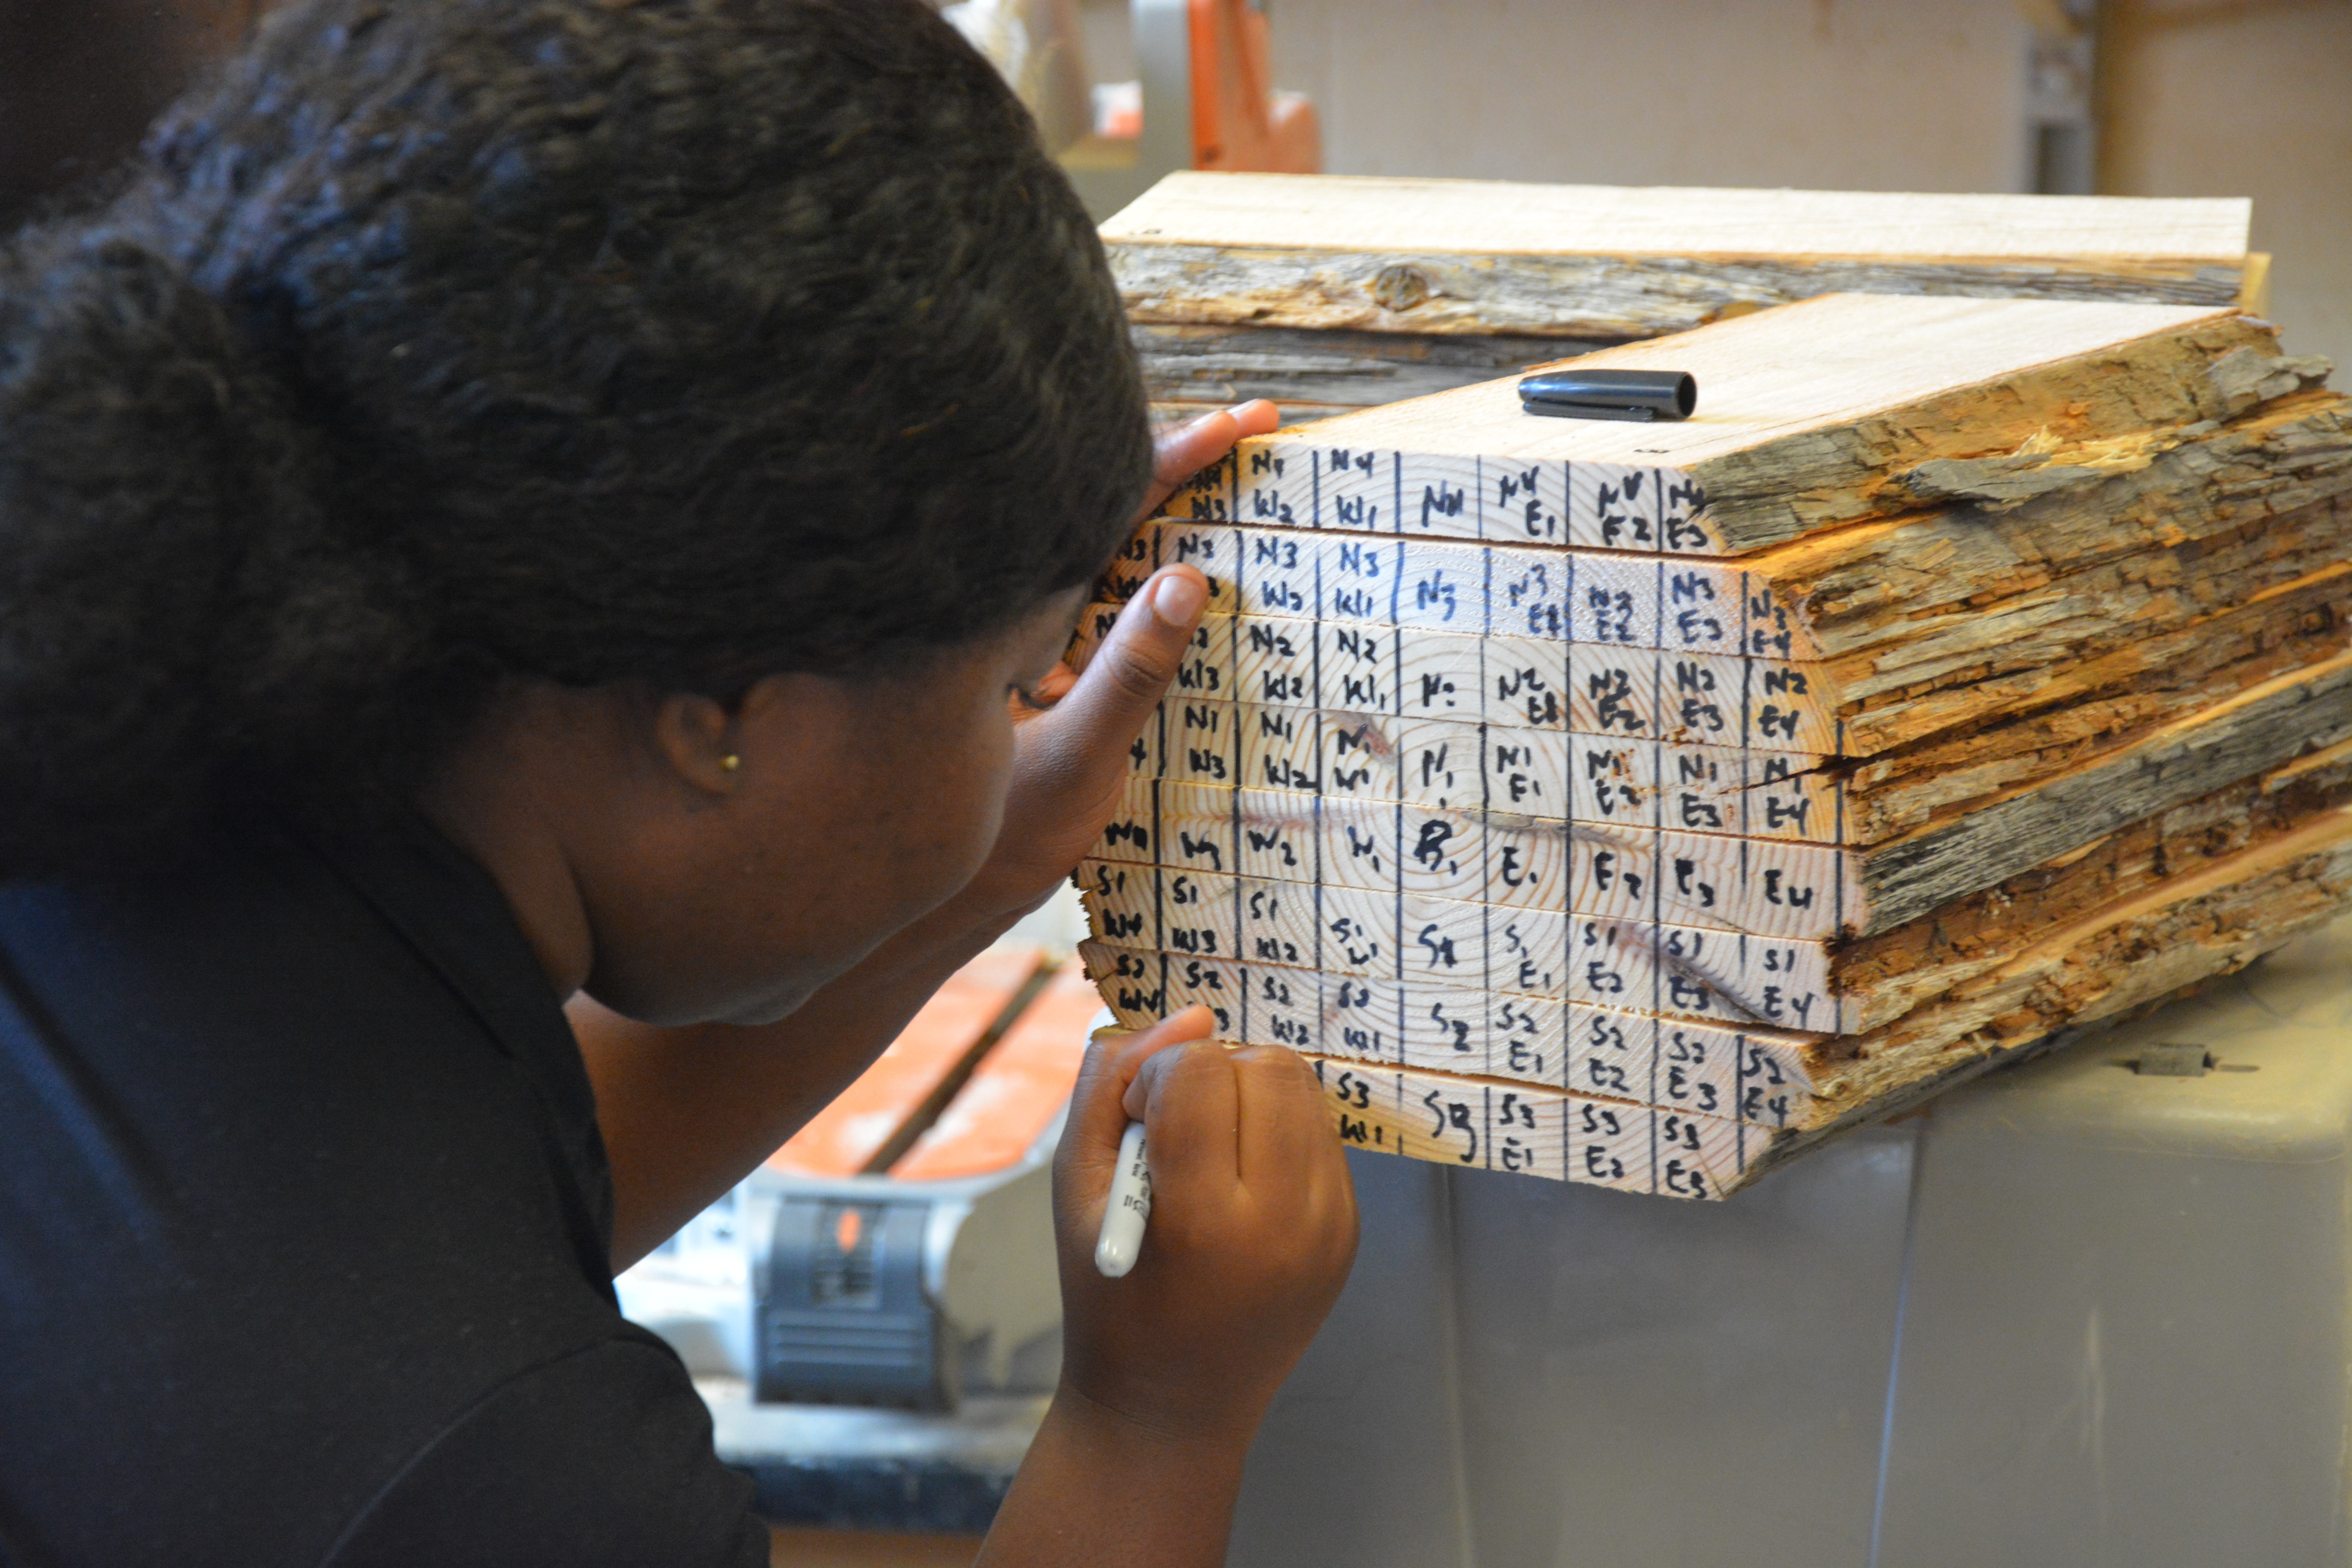 N4 N4 N4 N4 N4 N4 N4
W3 W2 W1 E1 E2 E3
N3 N3 N3 N3 N3 N3 N3 N3 N3
W2 W1 E1 E2 E3 E4
N2 N2 N2 N2 N2 N2 N2
W3 W2 W1 E1 E2 E3 E4
N1 N1 N1 N1 N1 N1 N1 N1
W3 W2 W1 E1 E2 E3 E4
W4 W3 W2 W1 E1 E2 E3 E4
S1 S1 S1 S1 S1 S1 S1 S1 S1
W4 W3 W2 W1 E1 E2 E3 E4
S2 S2 S2 S2 S2 S2 S2 S2 S2
W4 W2 W1 E1 E2 E3 E4
S3 S3 S3 S3 S3
W1 E1 E2 E3